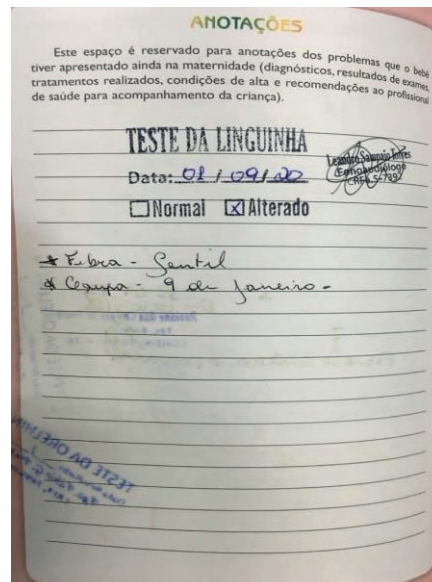 ANOTAÇÕES
Este espaço é reservado para anotações dos problemas que o bebê
tiver apresentado ainda na maternidade (diagnósticos, resultados de exames,
tratamentos realizados, condições de alta e recomendações ao profissional
de saúde para acompanhamento da criança).
TESTE DA LINGUINHA
Leandro Sampaio
Fonoaudiólogo
CRFa 5-789
Data: 01/09/20
Normal Alterado
* Fibra - Gentil
* - 9 de Janeiro -
TESTE DA ORELHINHA